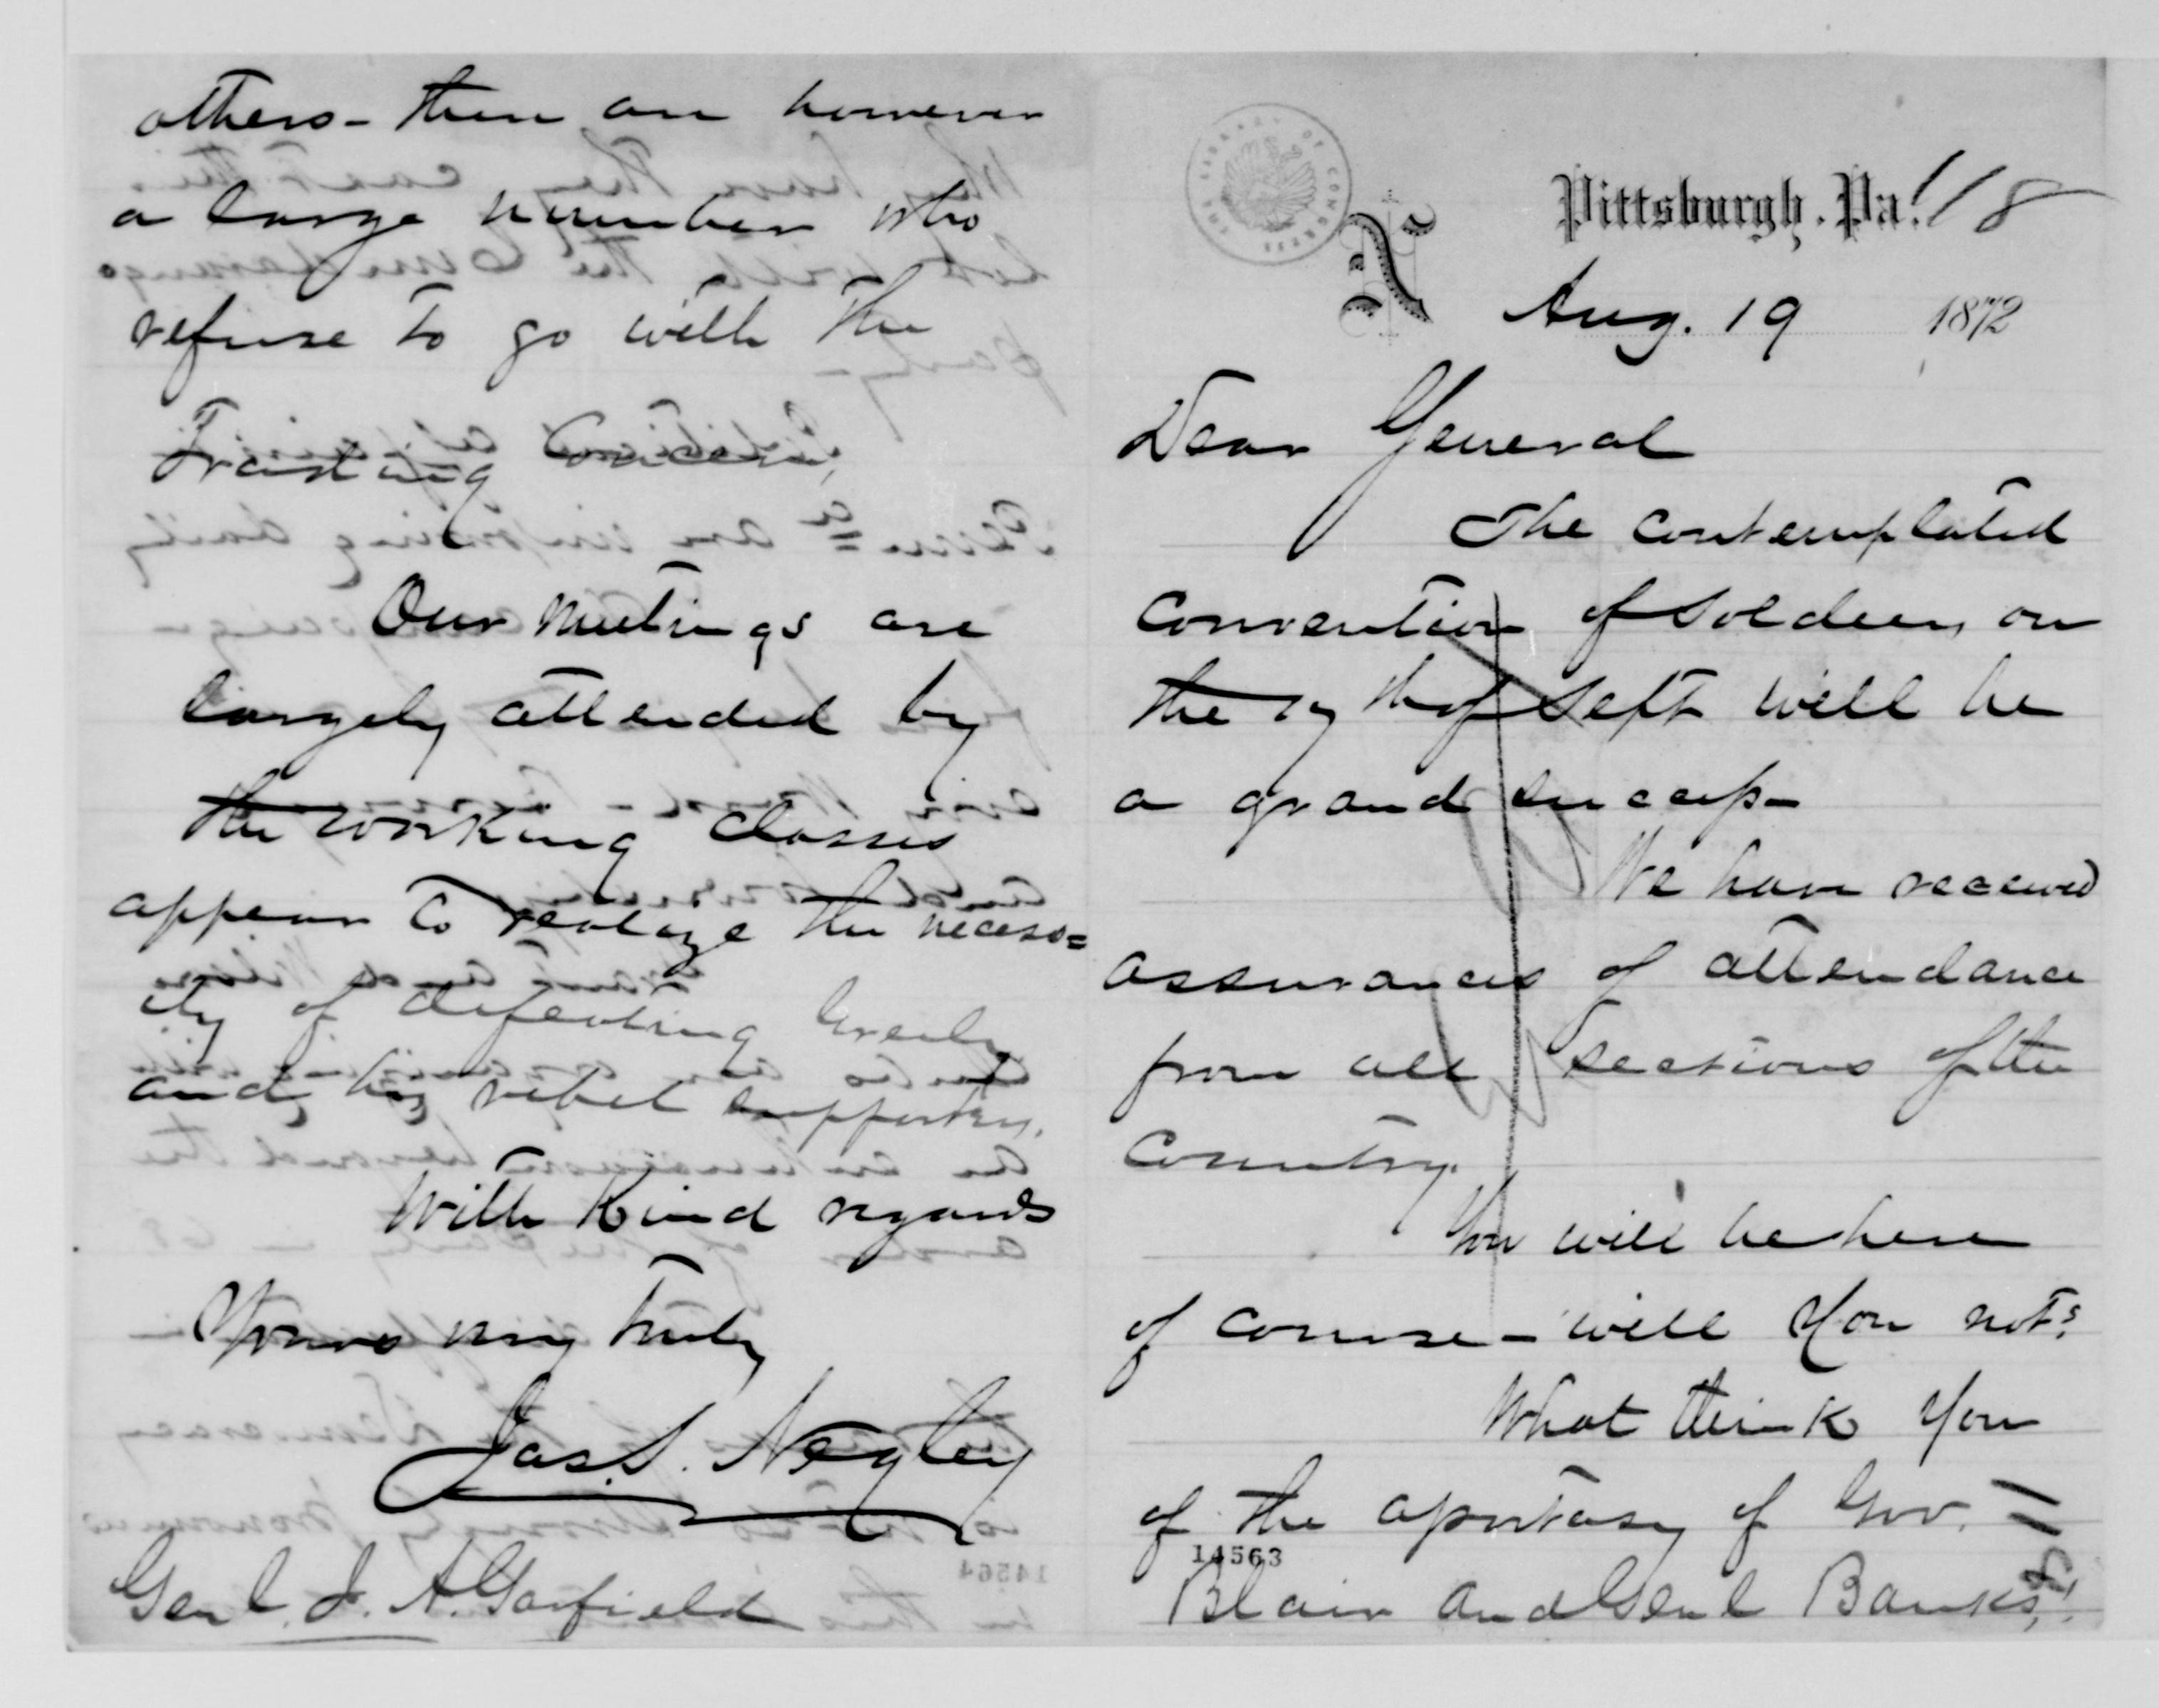 Pittsburgh, Pa. 118
N
Aug. 19 1872
Dear General
The contemplated
Convention of Soldiers on
the 17th of Sept will be
a grand success—
We have received
assurances of attendance
from all sections of the
Country.
You will be here
of course — will You not?
What think You
of the apostasy of Gov.
Blair and Genl Banks!
14563
others — there are however
a large number who
refuse to go with the
Trading Concern,
Our Meetings are
largely attended by
the working classes
appear to realize the necess=
ity of defeating Greely
and his rebel supporters.
With Kind regards
Yours very truly
Jas. S. Negley
Genl. J. A. Garfield